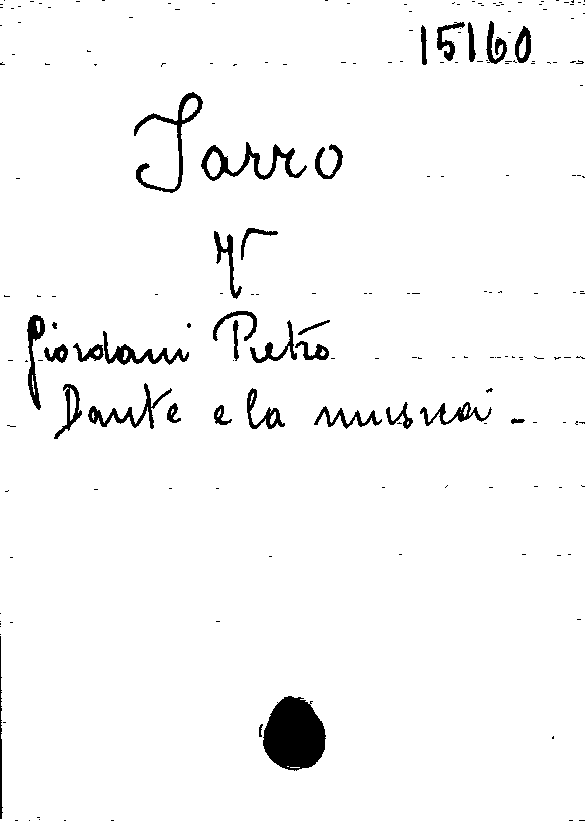 15160
Jarro
V
Giordani Pietro
Dante e la musica -